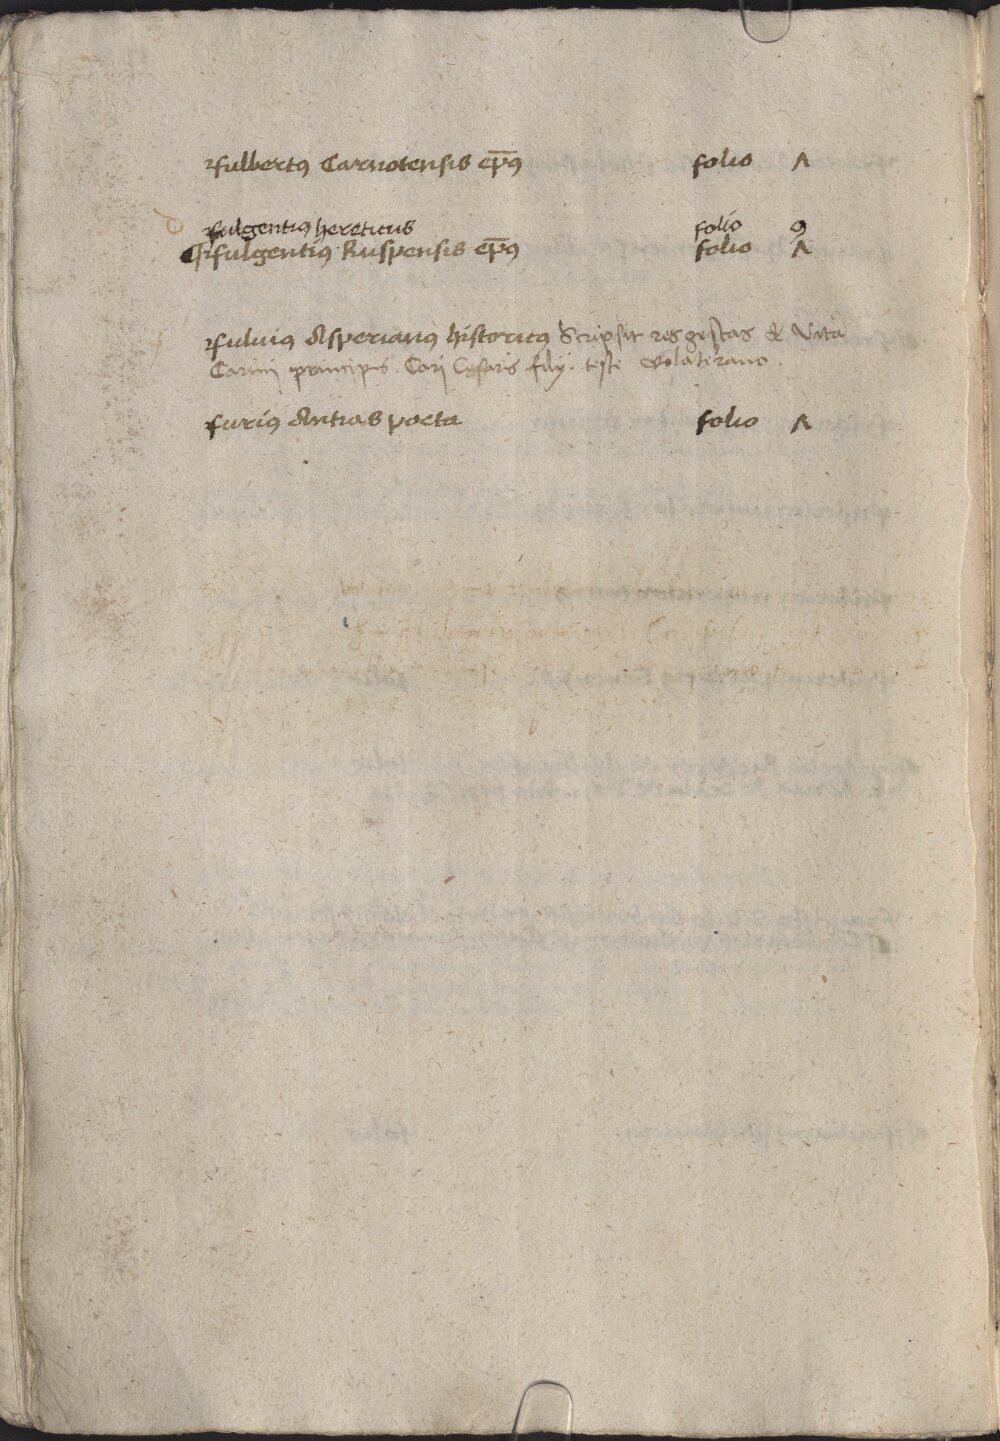 Fulbertꝰ Carnotensis ep̄ꝰ folio 7
Fulgentiꝰ hereticus folio 9
¶ Fulgentiꝰ Ruspensis ep̄ꝰ folio 7
Fuluiꝰ Asperianꝰ historicꝰ Scripsit res gestas & Vita
Carini principis. Cari Cesaris filij. teste Volaterano.
Furiꝰ Antias poeta folio